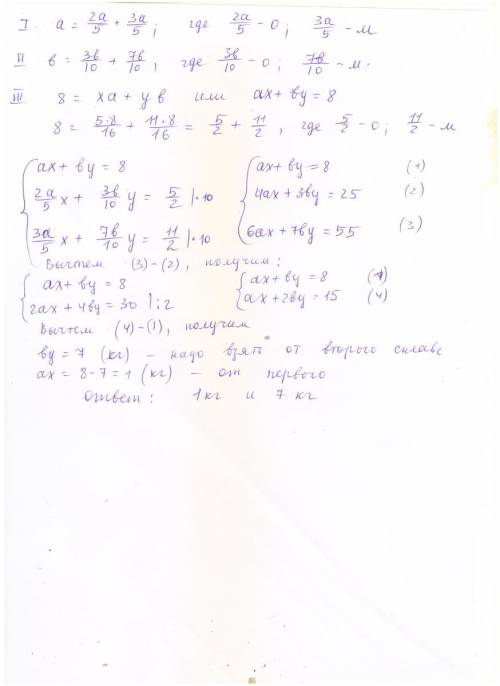 I. a = 2a/5 + 3a/5 ; где 2a/5 - О ; 3a/5 - м
II в = 3в/10 + 7в/10 , где 3в/10 - О ; 7в/10 - м.
III 8 = xa + yв или ax + вy = 8
8 = 5·8/16 + 11·8/16 = 5/2 + 11/2 , где 5/2 - О ; 11/2 - м
{ ax + вy = 8 { ax + вy = 8 (1)
2a/5 x + 3в/10 y = 5/2 |·10 4ax + 3вy = 25 (2)
3a/5 x + 7в/10 y = 11/2 |·10 6ax + 7вy = 55 (3)
Вычтем (3)-(2), получим:
{ ax + вy = 8 { ax + вy = 8 (1)
2ax + 4вy = 30 |:2 ax + 2вy = 15 (4)
Вычтем (4)-(1), получим
вy = 7 (кг) - надо взять от второго сплава
ax = 8-7 = 1 (кг) - от первого
Ответ: 1кг и 7 кг